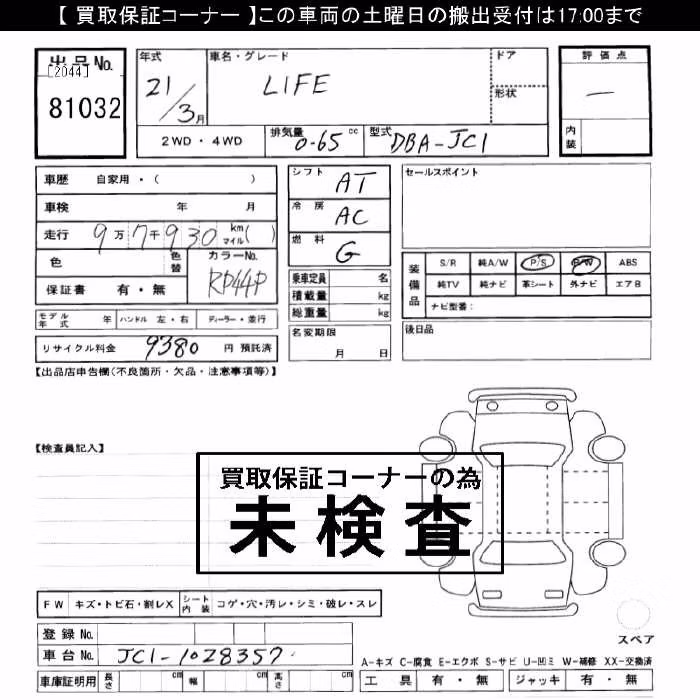 【 買取保証コーナー 】この車両の土曜日の搬出受付は17:00まで
出品No.
[2044]
81032
年式
21/3月
車名・グレード
LIFE
ドア
形状
評価点
—
内装
2WD・4WD
排気量 0.65 cc
型式 DBA-JC1
車歴 自家用・( )
車検 年 月
走行 9万7千930 km マイル( )
色 色替
カラーNo.
RP44P
保証書 有・無
モデル年式 年 ハンドル 左・右 ディーラー・並行
リサイクル料金 9380 円 預託済
シフト AT
冷房 AC
燃料 G
乗車定員 名
積載量 kg
総重量 kg
名変期限
月 日
セールスポイント
装備品
S/R 純A/W P/S P/W ABS
純TV 純ナビ 革シート 外ナビ エアB
ナビ型番:
後日品
【出品店申告欄(不良箇所・欠品・注意事項等)】
【検査員記入】
買取保証コーナーの為
未検査
FW キズ・トビ石・割レX
シート内装 コゲ・穴・汚レ・シミ・破レ・スレ
登録No.
車台No. JC1-1028357
車庫証明用 長さ cm 幅 cm 高さ cm
スペア
A-キズ C-腐食 E-エクボ S-サビ U-凹ミ W-補修 XX-交換済
工具 有・無 ジャッキ 有・無